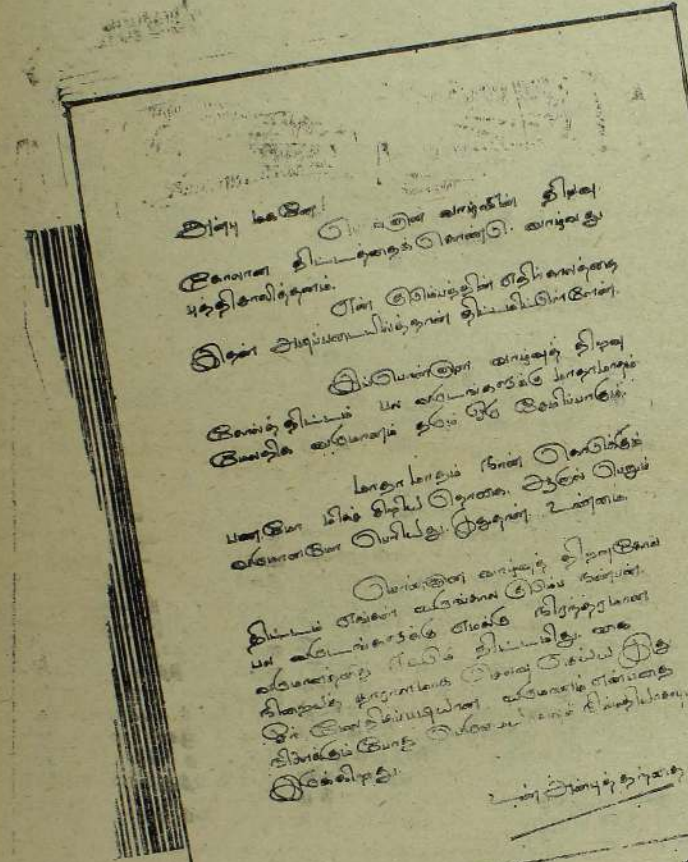 அன்பு மகனே!
வாழ்வின் திறவு
கோலான திட்டத்தைக் கொண்டு வாழ்வது
புத்திசாலித்தனம்.
என் குடும்பத்தின் எதிர்காலத்தை
இதன் அடிப்படையில்த்தான் திட்டமிட்டுள்ளேன்.
இப்பொன்னான வாழ்வுத் திறவு
கோல்த் திட்டம் பல வருடங்களுக்கு மாதாமாதம்
மேலதிக வருமானம் தரும் ஒரு சேமிப்பாகும்.
மாதா மாதம் நான் கொடுக்கும்
பணமோ மிகச் சிறிய தொகை. ஆனால் பெறும்
வருமானமோ பெரியது. இதுதான் உண்மை.
பொன்னான வாழ்வுத் திறவுகோல்
திட்டம் எங்கள் வருங்கால குடும்ப நண்பன்.
பல வருடங்களுக்கு எமக்கு நிரந்தரமான
வருமானத்தை திட்டமிது. கை
நிறையத் தாராளமாக செலவு செய்ய இது
ஓர் மேலதிகப்படியான வருமானம் என்பதை
நினைக்கும் போது
இருக்கிறது.
உன் அன்புத் தந்தை